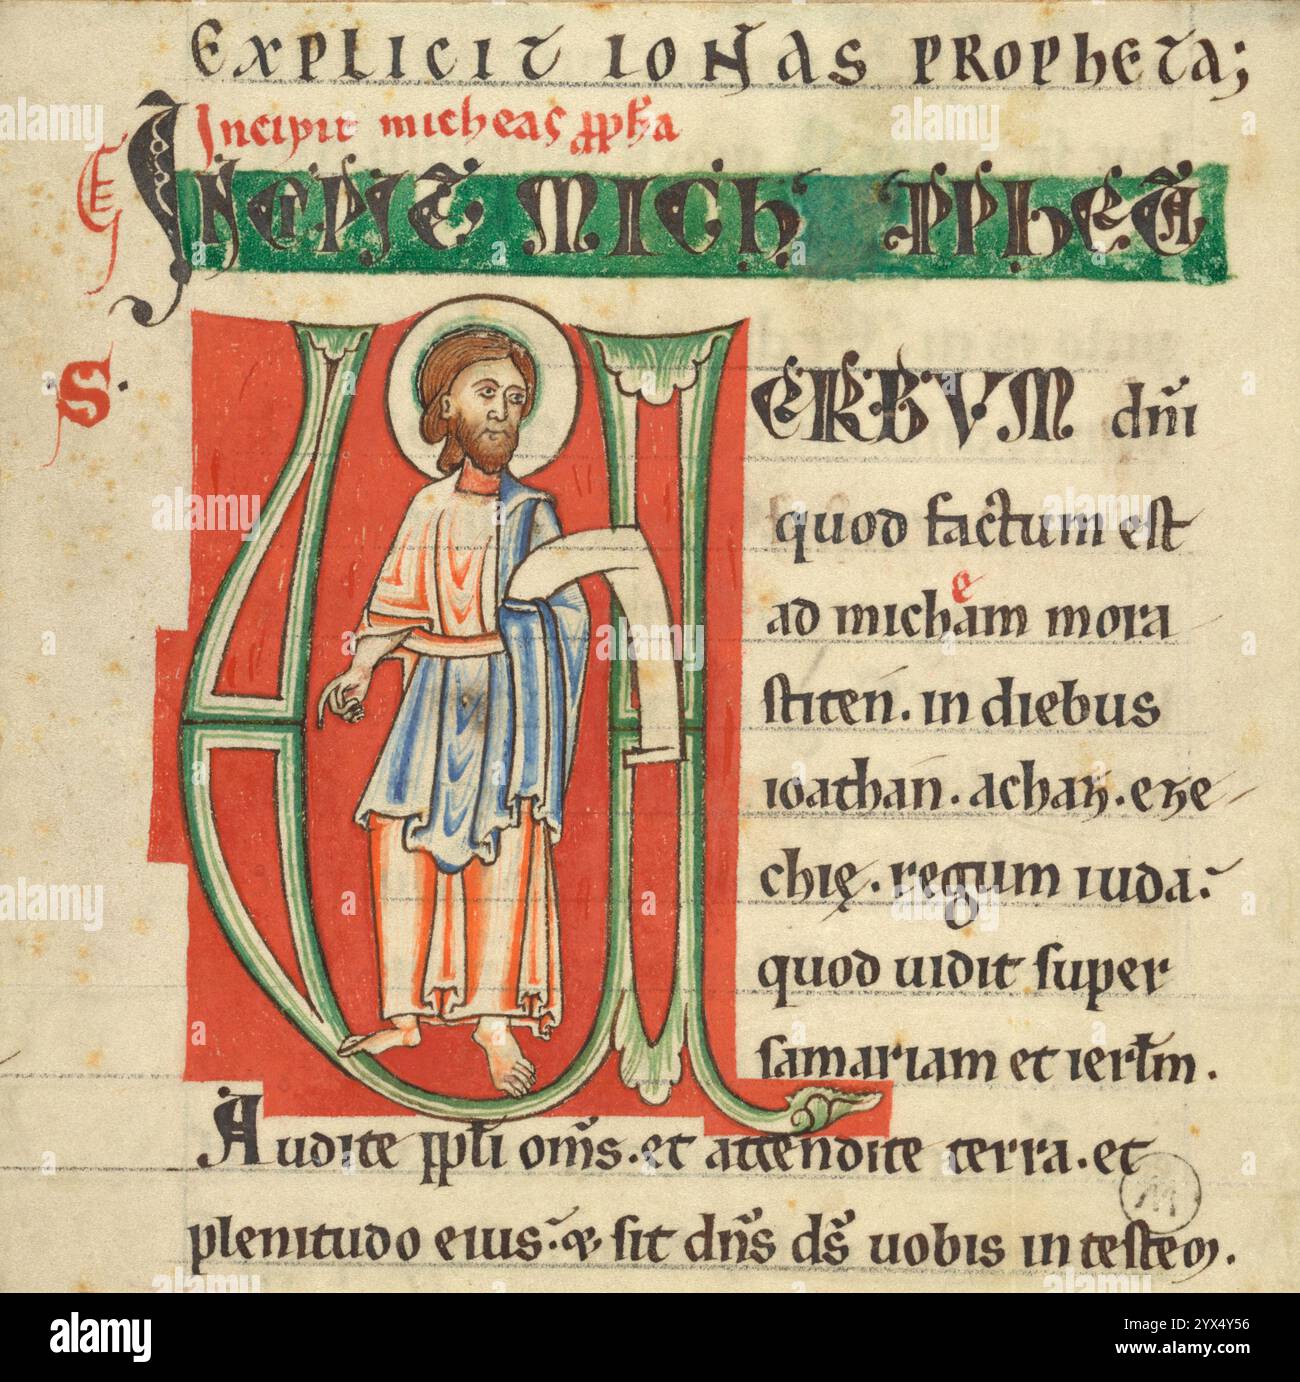 EXPLICIT IONAS PROPHETA;
Incipit micheas ꝓpħa
INCIPIT MICH' PPHETA
S.
VERBVM dn̄i
quod factum est
ad micheam mora
stiten̄. in diebus
ioathan. achaz. eze
chię. regum iuda.
quod uidit super
samariam et ierłm.
Audite ppłi om̄s. et attendite terra. et
plenitudo eius. & sit dn̄s ds̄ uobis in testem.
M
alamy
Image ID: 2YX4Y56
www.alamy.com